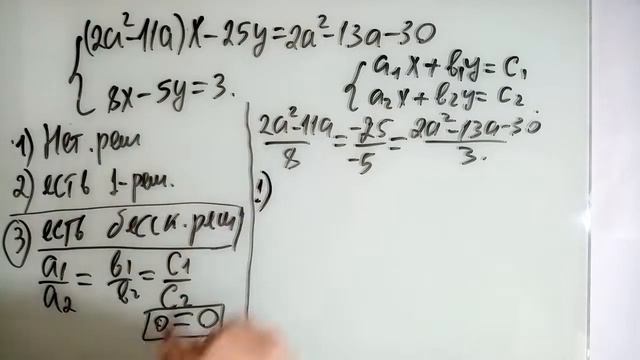 (2a²-11a)x-25y=2a²-13a-30
8x-5y=3.
a₁x+b₁y=c₁
a₂x+b₂y=c₂.
1) Нет.реш
2) есть 1-реш.
3) есть беск.реш
a₁/a₂ = b₁/b₂ = c₁/c₂
0=0
(2a²-11a)/8 = -25/-5 = (2a²-13a-30)/3.
1)